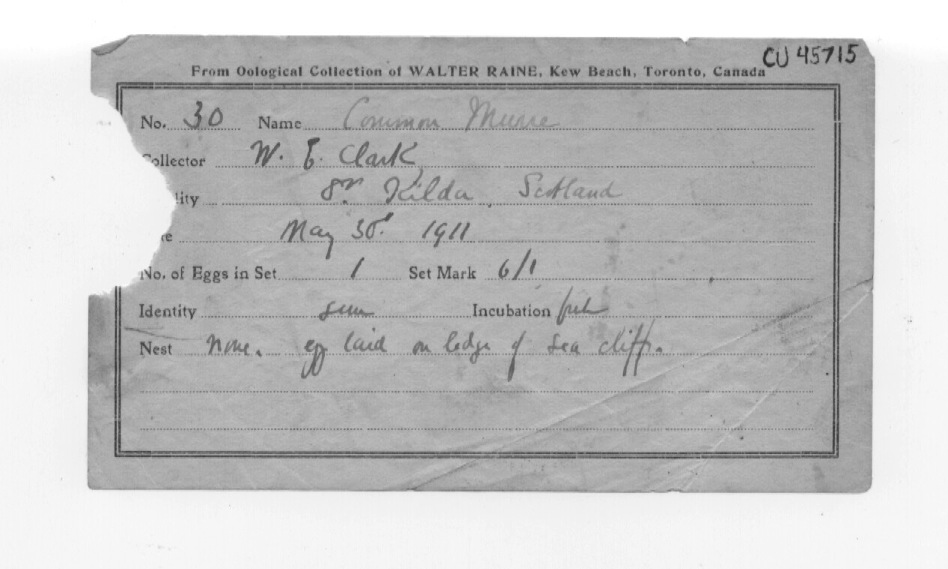 CU 45715
From Oological Collection of WALTER RAINE, Kew Beach, Toronto, Canada
No. 30 Name Common Murre
Collector W. E. Clark
lity St Kilda, Scotland
te May 30t 1911
No. of Eggs in Set 1 Set Mark 6/1
Identity seen Incubation fresh
Nest none. egg laid on ledge of sea cliff.